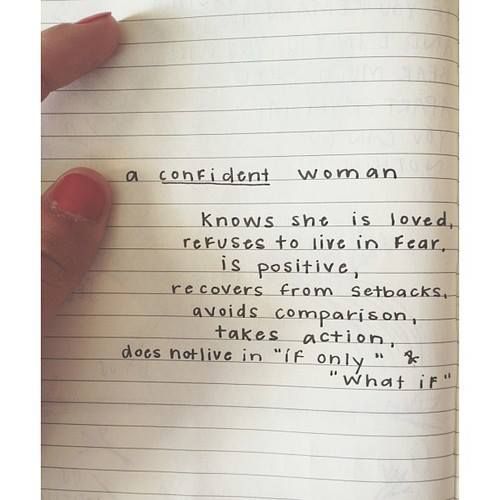 a confident woman
knows she is loved,
refuses to live in fear.
is positive,
recovers from setbacks,
avoids comparison,
takes action,
does not live in "if only" &
"what if"